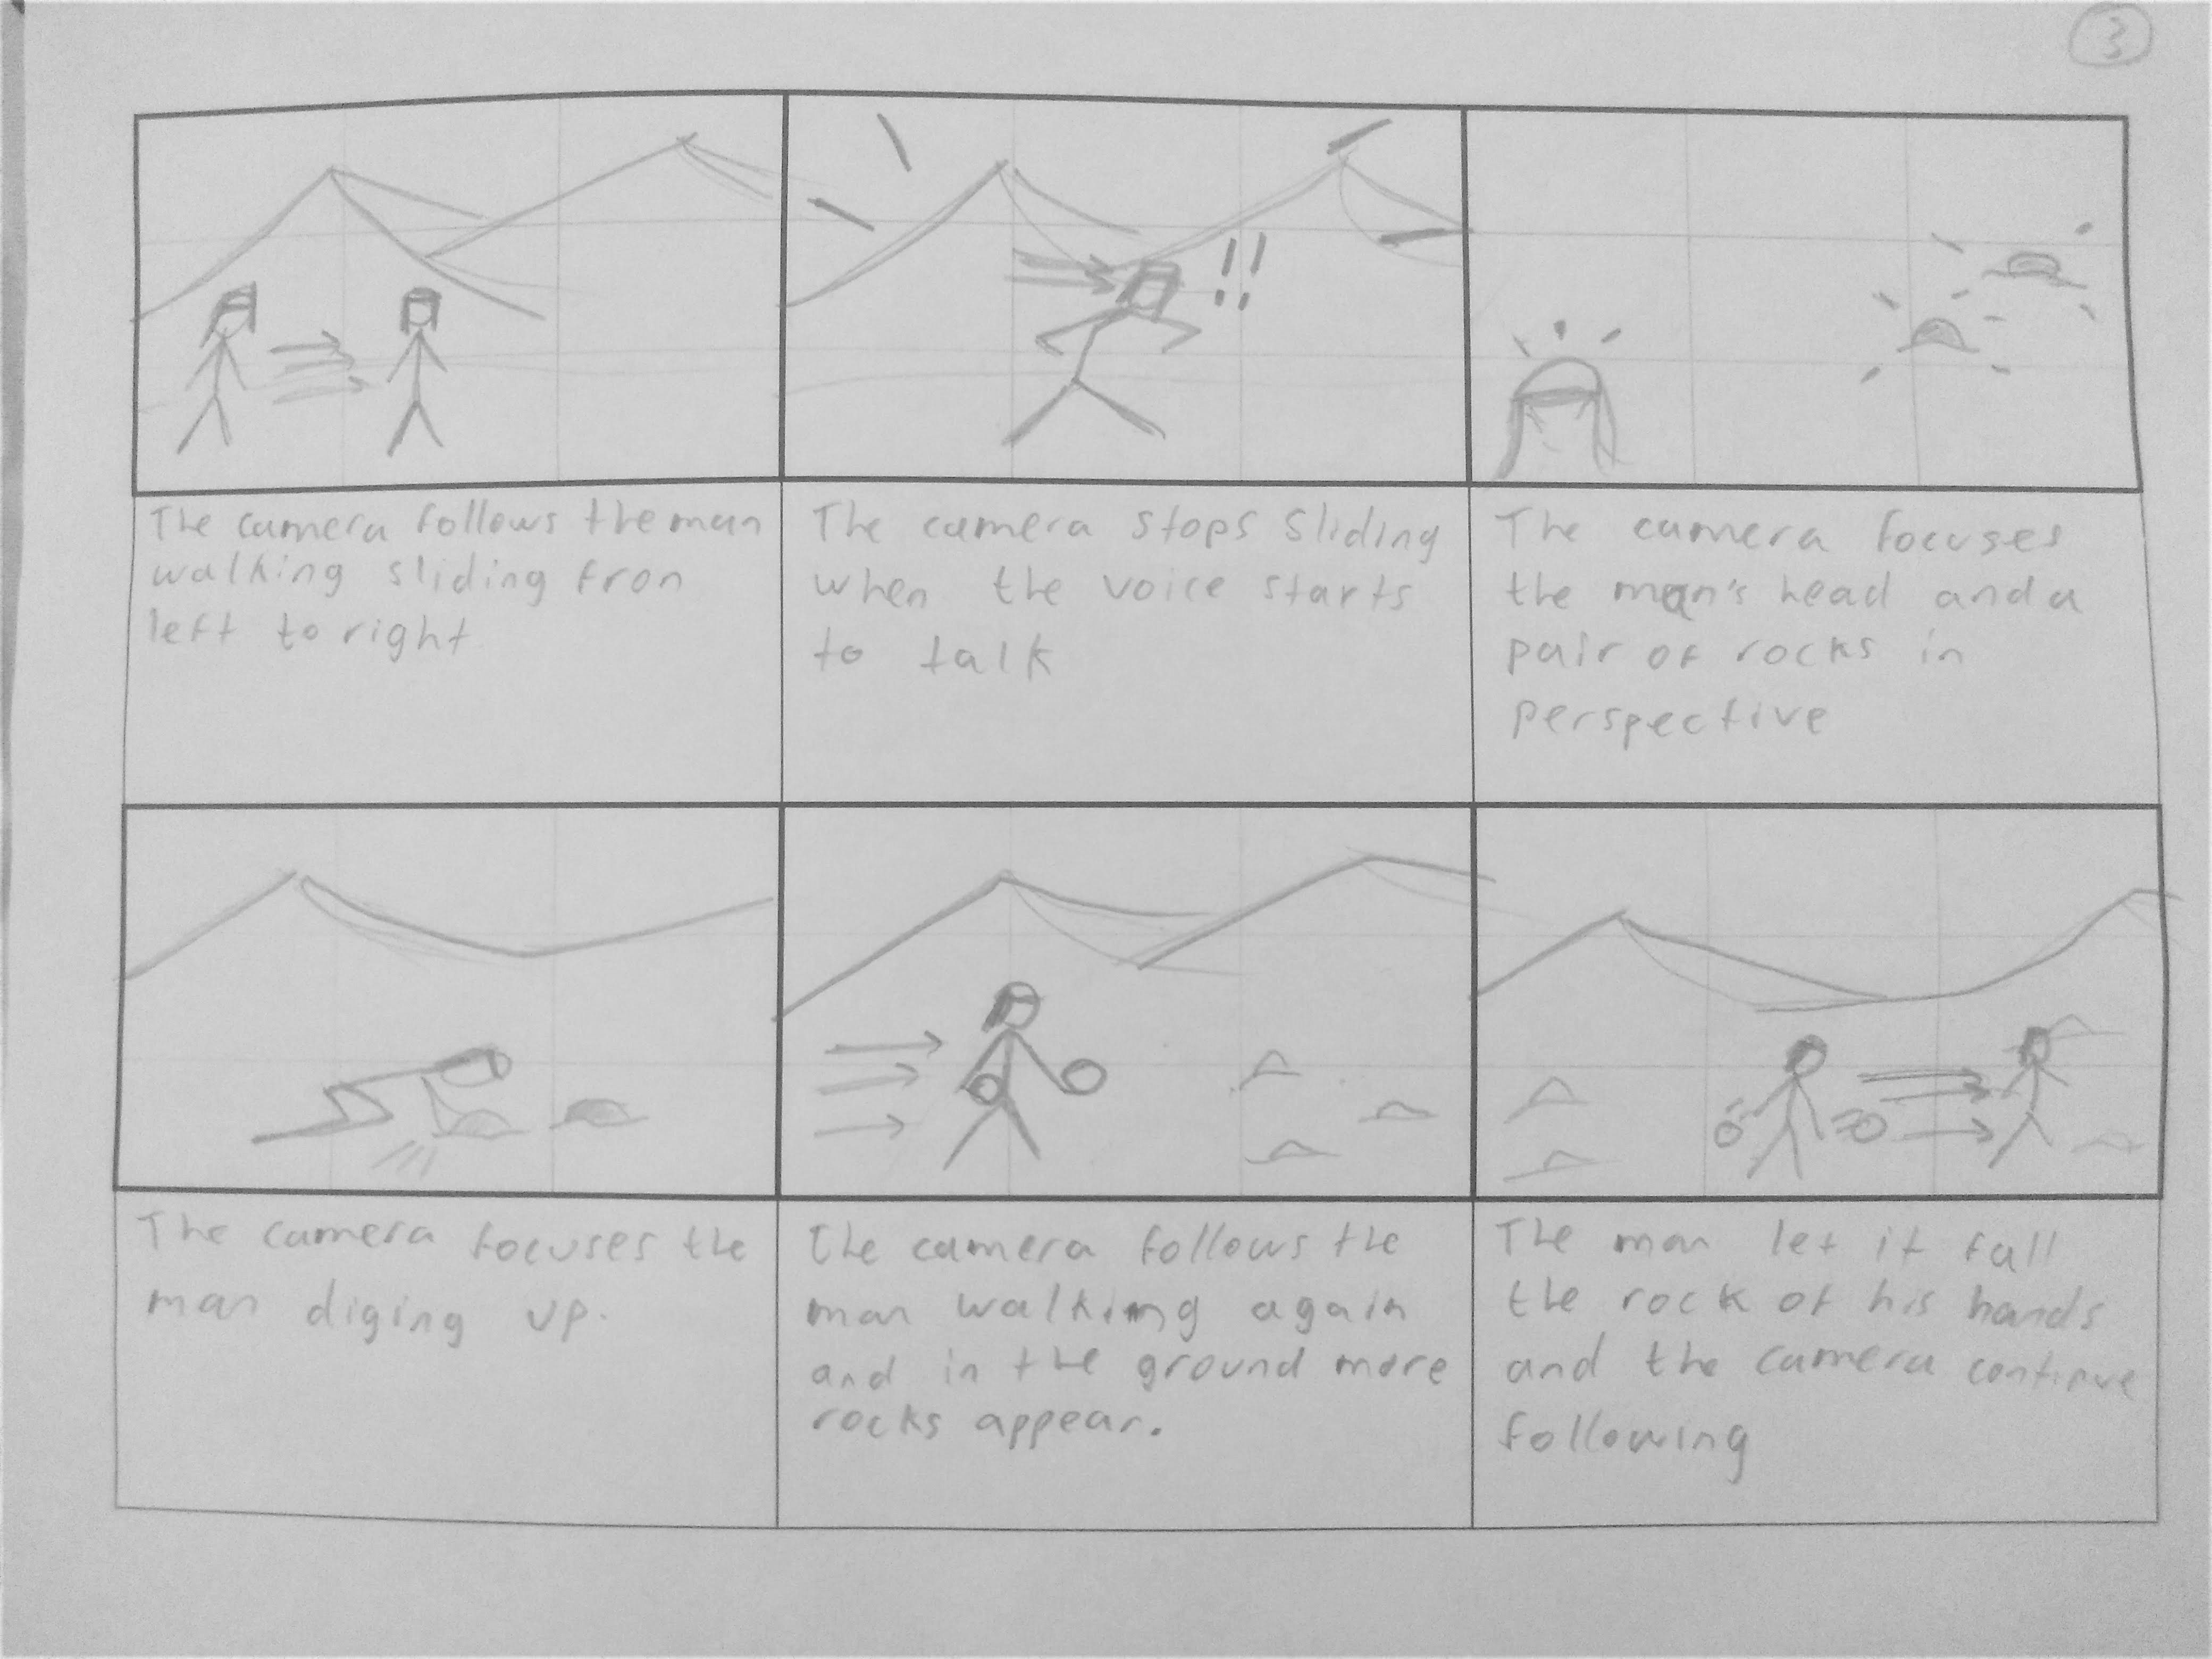 3
!!
The camera follows the man
walking sliding fron
left to right
The camera stops sliding
when the voice starts
to talk
The camera focuses
the man's head and a
pair of rocks in
perspective
The camera focuses the
man diging up.
The camera follows the
man walking again
and in the ground more
rocks appear.
The man let it fall
the rock of his hands
and the camera continue
following